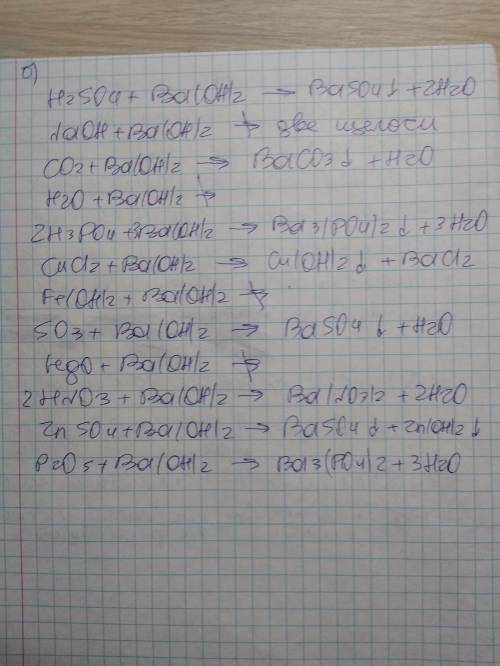 б)
H2SO4 + Ba(OH)2 → BaSO4↓ + 2H2O
NaOH + Ba(OH)2 ↛ две щелочи
CO2 + Ba(OH)2 → BaCO3↓ + H2O
H2O + Ba(OH)2 ↛
2H3PO4 + 3Ba(OH)2 → Ba3(PO4)2↓ + 3H2O
CuCl2 + Ba(OH)2 → Cu(OH)2↓ + BaCl2
Fe(OH)2 + Ba(OH)2 ↛
SO3 + Ba(OH)2 → BaSO4↓ + H2O
HgO + Ba(OH)2 ↛
2HNO3 + Ba(OH)2 → Ba(NO3)2 + 2H2O
ZnSO4 + Ba(OH)2 → BaSO4↓ + Zn(OH)2↓
P2O5 + Ba(OH)2 → Ba3(PO4)2 + 3H2O